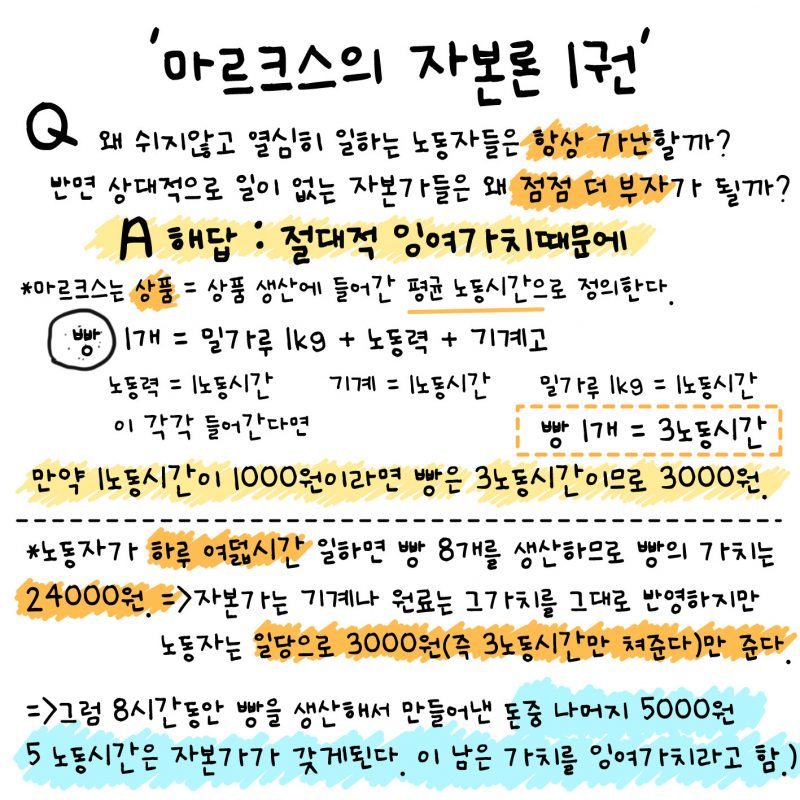 '마르크스의 자본론 1권'
Q 왜 쉬지않고 열심히 일하는 노동자들은 항상 가난할까?
반면 상대적으로 일이 없는 자본가들은 왜 점점 더 부자가 될까?
A 해답 : 절대적 잉여가치때문에
*마르크스는 상품 = 상품 생산에 들어간 평균 노동시간으로 정의한다.
빵 1개 = 밀가루 1kg + 노동력 + 기계고
노동력 = 1노동시간 기계 = 1노동시간 밀가루 1kg = 1노동시간
이 각각 들어간다면
빵 1개 = 3노동시간
만약 1노동시간이 1000원이라면 빵은 3노동시간이므로 3000원.
*노동자가 하루 여덟시간 일하면 빵 8개를 생산하므로 빵의 가치는
24000원. =>자본가는 기계나 원료는 그가치를 그대로 반영하지만
노동자는 일당으로 3000원(즉 3노동시간만 쳐준다)만 준다.
=>그럼 8시간동안 빵을 생산해서 만들어낸 돈중 나머지 5000원
5 노동시간은 자본가가 갖게된다. 이 남은 가치를 잉여가치라고 함.)